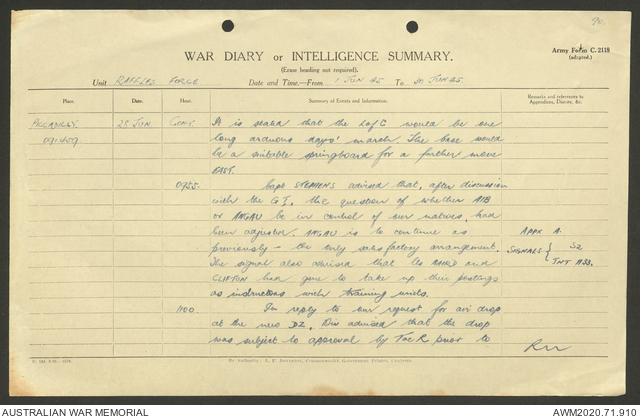 90.
WAR DIARY or INTELLIGENCE SUMMARY.
Army Form C. 2118
(adapted.)
(Erase heading not required).
Unit RAFFLES FORCE Date and Time.—From 1 JUN 45 To 30 JUN 45.
Place. Date. Hour. Summary of Events and Information. Remarks and references to
Appendices, Diaries, &c.
PICCADILLY 25 JUN CONT. It is stated that the L of C would be one
091459 long arduous days' march. The base would
be a suitable springboard for a further move
EAST.
0955. Capt STEPHENS advised that, after discussion
with the G I, the question of whether AIB
or ANGAU be in control of our natives, had
been adjusted. ANGAU is to continue as APPX A.
previously - the only satisfactory arrangement. SIGNALS { S2
The signal also advised that Lts BAIRD and INT A33.
CLIFTON had gone to take up their postings
as instructors with training units.
1100. In reply to our request for air drop
at the new DZ, Div advised that the drop
was subject to approval by Tac R prior to
By Authority: L. F. Johnston, Commonwealth Government Printer, Canberra.
AUSTRALIAN WAR MEMORIAL
AWM2020.71.910